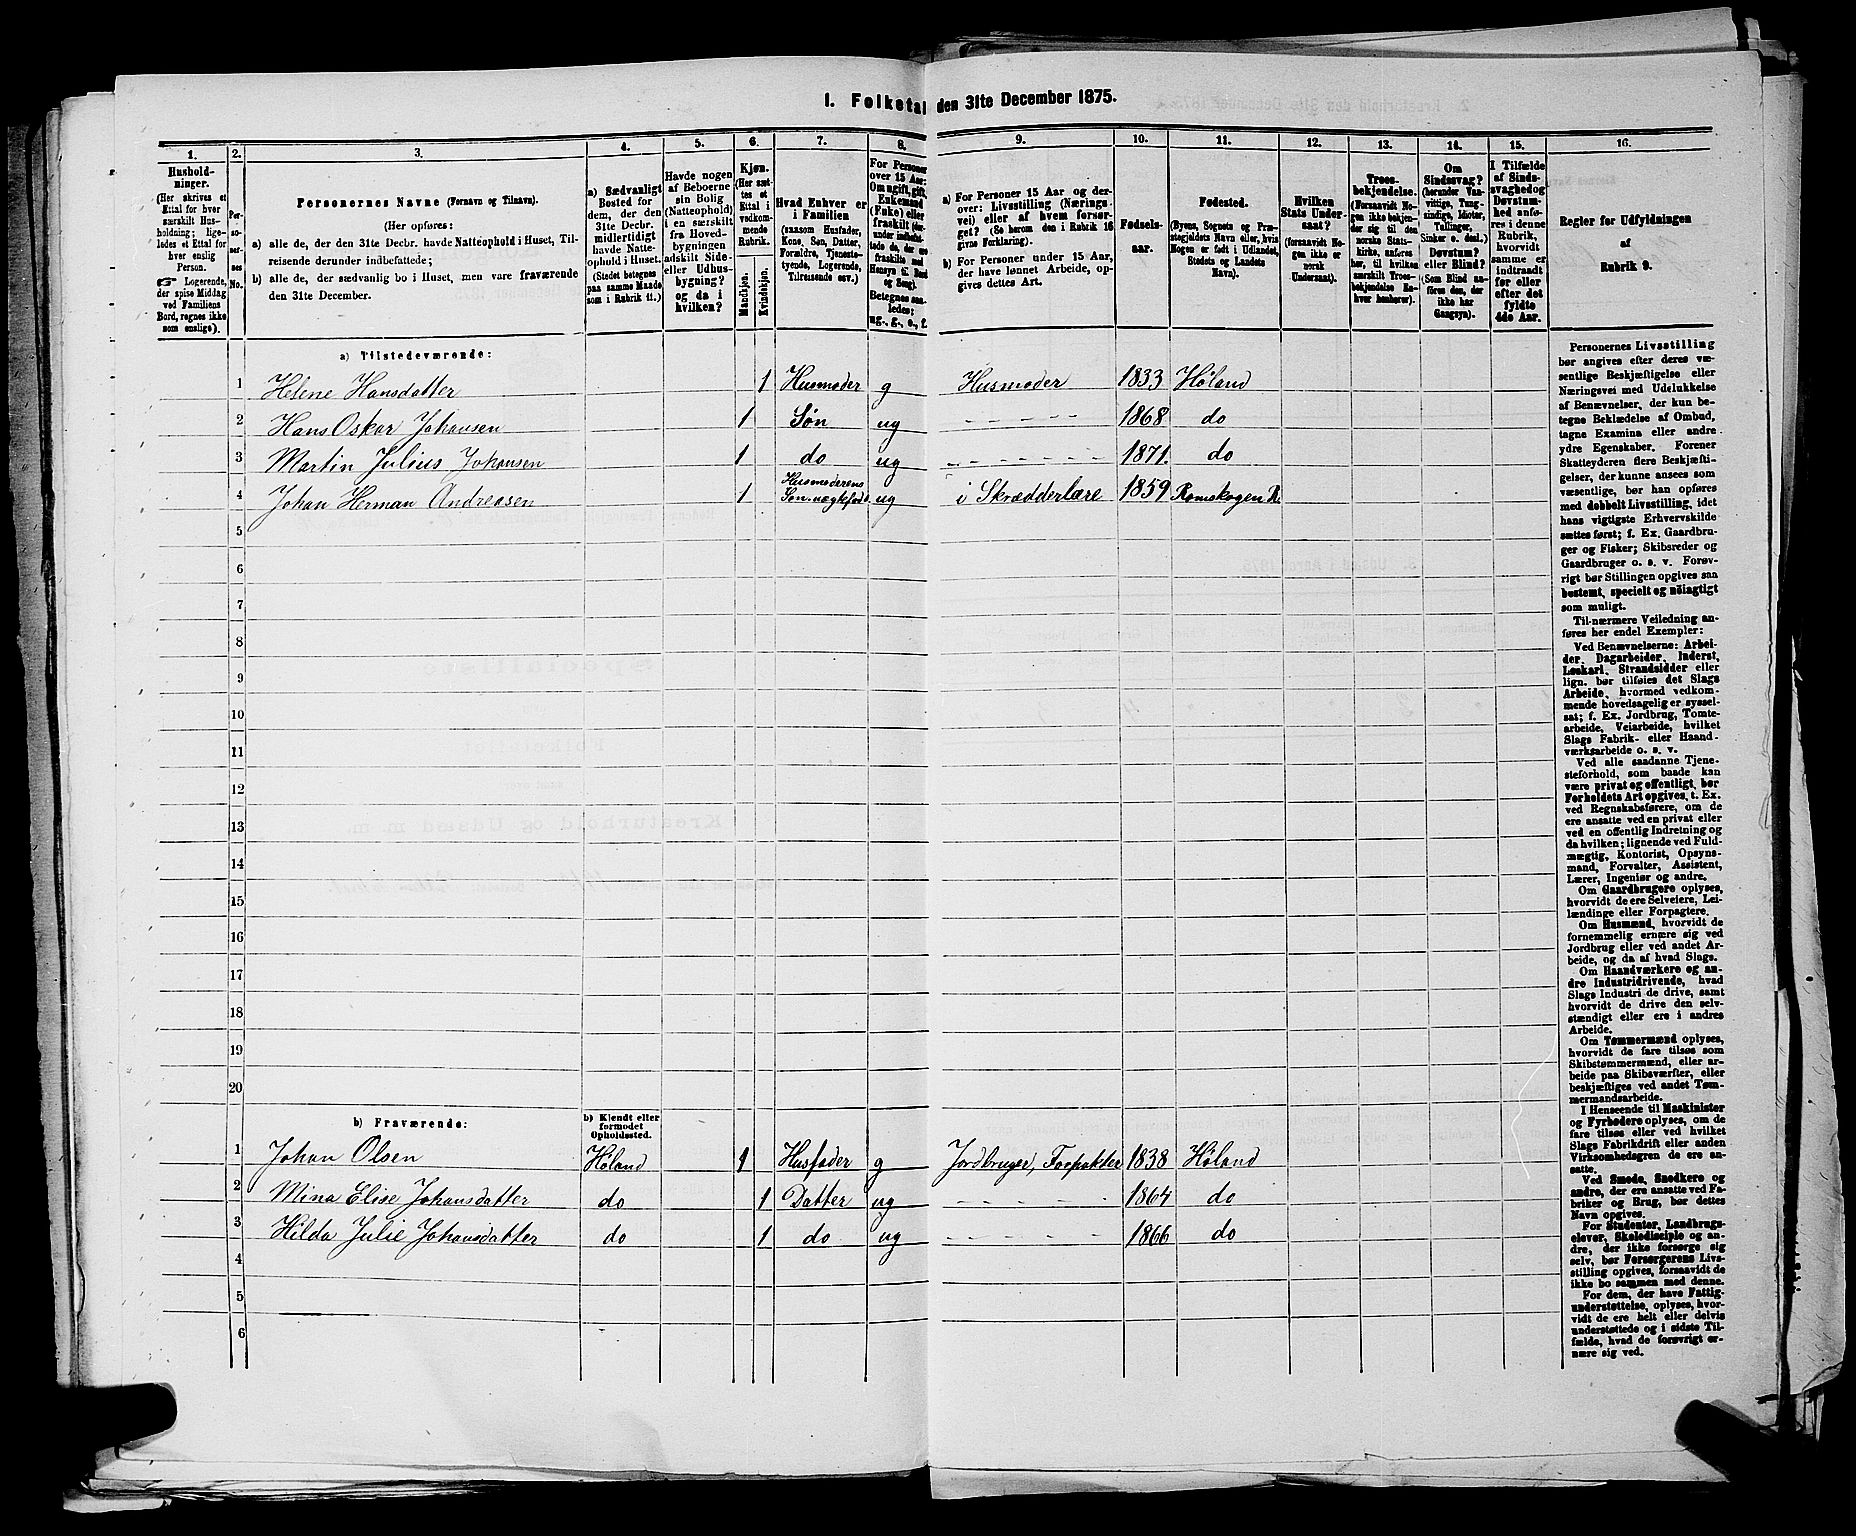 1. Folketal den 31te December 1875.
1. 2. 3. 4. 5. 6. 7. 8. 9. 10. 11. 12. 13. 14. 15. 16.
Hushold-
ninger.
(Her skrives et
Ettal for hver
særskilt Hus-
holdning; lige-
ledes et Ettal for
hver enslig
Person.
☞ Logerende,
der spise Middag
ved Familiens
Bord, regnes ikke
som enslige).
Per-
so-
ner-
nes
No.
Personernes Navne (Fornavn og Tilnavn).
(Her opføres:
a) alle de, der den 31te Decbr. havde Natteophold i Huset, Til-
reisende derunder indbefattede;
b) alle de, der sædvanlig bo i Huset, men vare fraværende
den 31te December.
a) Sædvanligt
Bosted for
dem, der den
31te Decbr.
midlertidigt
havde Natte-
ophold i Huset.
(Stedet betegnes
paa samme Maade
som i Rubrik 11.)
Havde nogen
af Beboerne
sin Bolig
(Natteophold)
i en særskilt
fra Hoved-
bygningen
adskilt Side-
eller Udhus-
bygning?
og da i
hvilken?
Kjøn.
(Her sæt-
tes et
Ettal i
vedkom-
mende
Rubrik.
Mandkjøn.
Kvindekjøn.
Hvad Enhver er
i Familien
(saasom Husfader,
Kone, Søn, Datter,
Forældre, Tjeneste-
tyende, Logerende,
Tilreisende osv.)
For Personer
over 15 Aar:
Om ugift, gift,
Enkemand
(Enke) eller
fraskilt
Betegnes saa-
ledes:
ug., g., e., f.
a) For Personer 15 Aar og der-
over: Livsstilling (Nærings-
vei) eller af hvem forsør-
get? (Se herom den i Rubrik 16
givne Forklaring).
b) For Personer under 15 Aar,
der have lønnet Arbeide, op-
gives dettes Art.
Fødsels-
aar.
Fødested.
(Byens, Sognets og Præ-
stegjeldets Navn eller, hvis
Nogen er født i Udlandet,
Stedets og Landets
Navn).
Hvilken
Stats Under-
saat?
(forsaavidt No-
gen ikke er
norsk
Undersaat).
Troes-
bekjendelse.
(Forsaavidt No-
gen ikke bekjen-
der sig til den
norske Stats-
kirke, anføres
her, til hvilken
særskilt Troes-
bekjendelse En-
hver henhører).
Om
Sindssvag?
(herunder Van-
vittige, Tung-
sindige, Idioter,
Tullinger,
Sinker o. desl.)
Døvstum?
eller Blind?
(Som Blind an-
føres den, der
ikke har
Gangsyn).
I Tilfælde
af Sinds-
svaghed og
Døvstum-
hed anfø-
res i denne
Rubrik,
hvorvidt
samme er
indtraadt
før eller
efter det
fyldte
4de Aar.
Regler for Udfyldningen
af
Rubrik 9.
a) Tilstedeværende:
1 Helene Hansdatter 1 Husmoder g Husmoder 1833 Høland
2 Hans Oskar Johansen 1 Søn ug - - - - 1868 do
3 Martin Julius Johansen 1 do ug - - - - - - 1871. do
4 Johan Herman Andreasen 1 Husmoderens Søn uægtefødt ug i Skrædderlære 1859 Romskogen R.
5
6
7
8
9
10
11
12
13
14
15
16
17
18
19
20
b) Fraværende: b) Kjendt eller
formodet
Opholdssted.
1 Johan Olsen Høland 1 Husfader g Jordbruger, Forpakter 1838 Høland
2 Mina Elise Johansdatter do 1 Datter ug - - - - - 1864 do
3 Hilda Julie Johansdatter do 1 do ug - - - - - 1866 do
4
5
6
Personernes Livsstilling
bør angives efter deres væ-
sentlige Beskjæftigelse eller
Næringsvei med Udelukkelse
af Benævnelser, der kun be-
tegne Beklædelse af Ombud,
tagne Examina eller andre
ydre Egenskaber. Forener
Skatteyderen flere Beskjæfti-
gelser, der kunne ansees som
væsentlige, bør han opføres
med dobbelt Livsstilling, idet
hans vigtigste Erhvervskilde
sættes først; f. Ex. Gaardbru-
ger og Fisker; Skibsreder og
Gaardbruger o. s. v. Forøv-
rigt bør Stillingen opgives saa
bestemt, specielt og nøiagtigt
som muligt.
Til nærmere Veiledning an-
føres her endel Exempler:
Ved Benævnelserne: Arbei-
der, Dagarbeider, Inderst,
Løskarl, Strandsidder eller
lign. bør tilføies det Slags
Arbeide, hvormed vedkom-
mende hovedsagelig er syssel-
sat; f. Ex. Jordbrug, Tomte-
arbeide, Veiarbeide, hvilket
Slags Fabrik- eller Haand-
værksarbeide o. s. v.
Ved alle saadanne Tjene-
steforhold, som baade kan
være privat og offentligt, bør
Forholdets Art opgives, t. Ex.
ved Regnskabsførere, om de
ere ansatte ved en privat eller
ved en offentlig Indretning og
da hvilken; lignende ved Fuld-
mægtig, Kontorist, Opsyns-
mand, Forvalter, Assistent,
Lærer, Ingeniør og andre.
Om Gaardbrugere oplyses,
hvorvidt de ere Selveiere, Lei-
lændinge eller Forpagtere.
Om Husmænd, hvorvidt de
fornemmelig ernære sig ved
Jordbrug eller ved andet Ar-
beide, og da af hvad Slags.
Om Haandværkere og an-
dre Industridrivende, hvad
Slags Industri de drive, samt
hvorvidt de drive den selv-
stændigt eller ere i andres
Arbeide.
Om Tømmermænd oplyses,
hvorvidt de fare tilsøs som
Skibstømmermænd, eller ar-
beide paa Skibsværfter, eller
beskjæftiges ved andet Tøm-
mermandsarbeide.
I Henseende til Maskinister
og Fyrbødere oplyses, om de
fare tilsøs eller ved hvilket
Slags Fabrikdrift eller anden
Virksomhedsgren de ere an-
satte.
Ved Smede, Snedkere og
andre, der ere ansatte ved Fa-
briker og Brug, bør dettes
Navn opgives.
For Studenter, Landbrugs-
elever, Skoledisciple og an-
dre, der ikke forsørge sig
selv, bør Forsørgerens Livs-
stilling opgives, forsaavidt de
ikke bo sammen med denne.
For dem, der have Fattig-
understøttelse, oplyses, hvor-
vidt de ere helt eller delvis
understøttede og i sidste Til-
fælde, hvad de forøvrigt er-
nære sig ved.